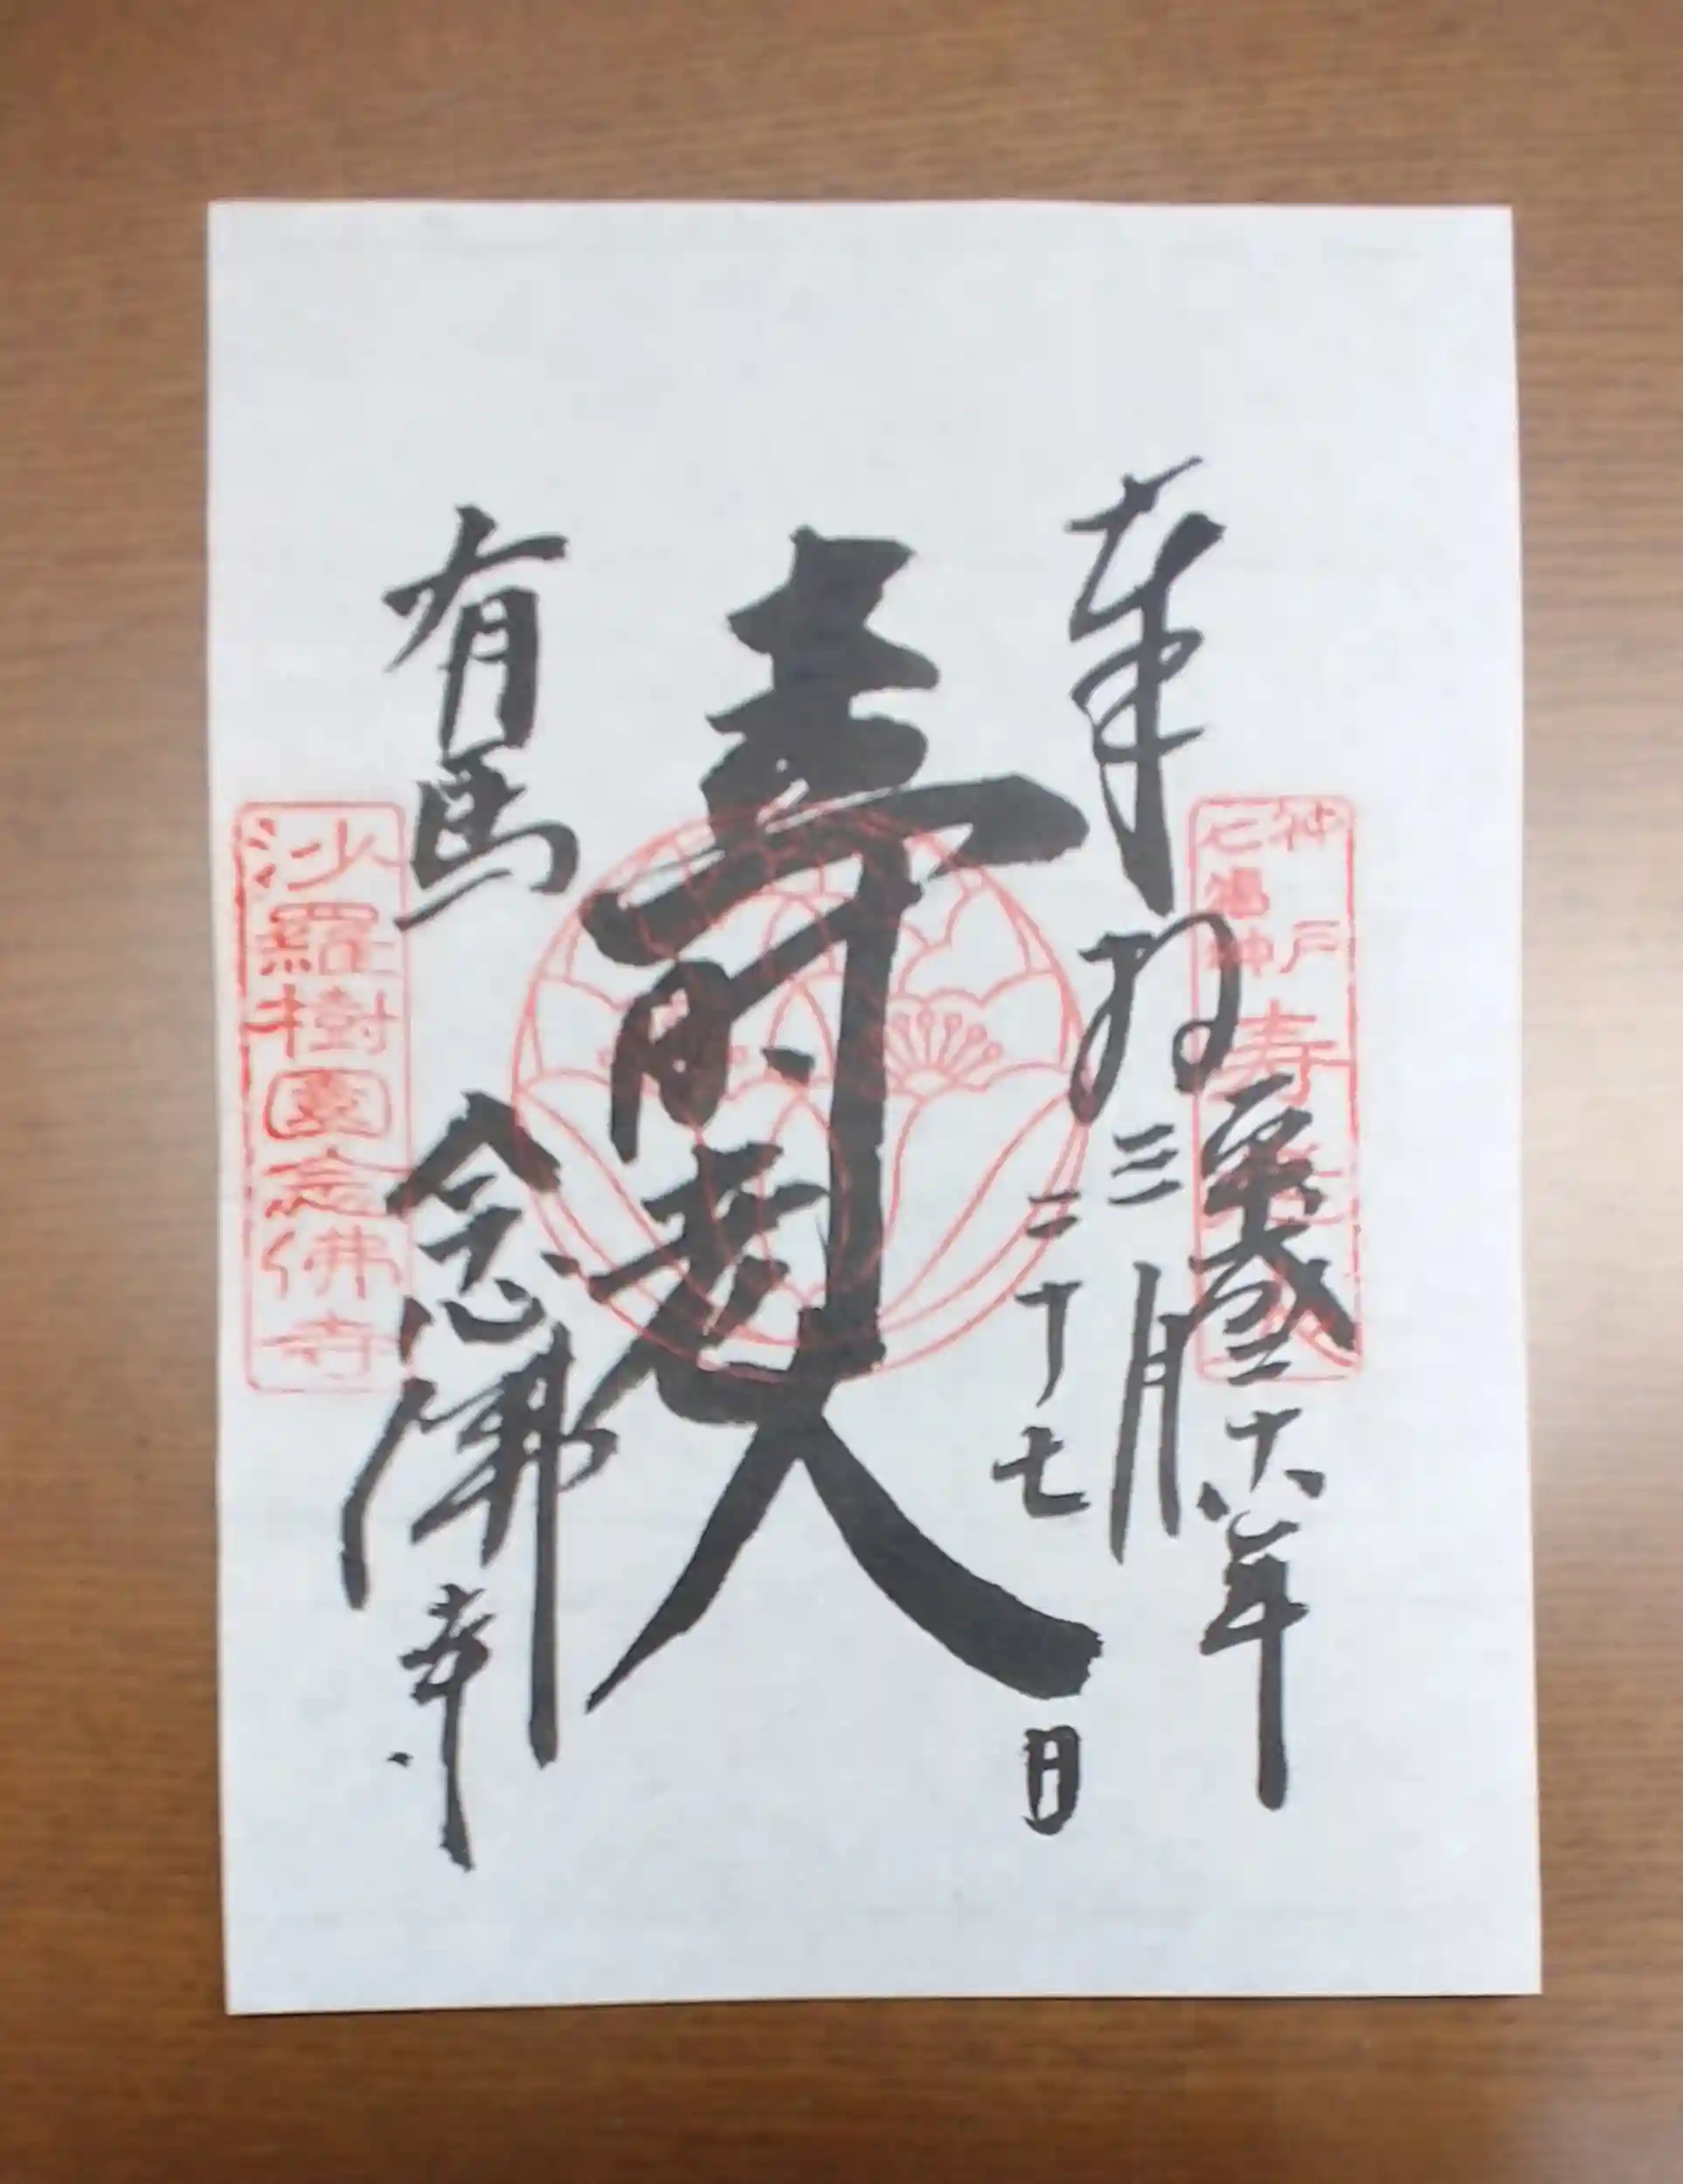 奉拝
平成二十六年
三月
二十七日
神戸
七福神
寿老人
壽老人
有馬
念佛寺
沙羅樹園念佛寺